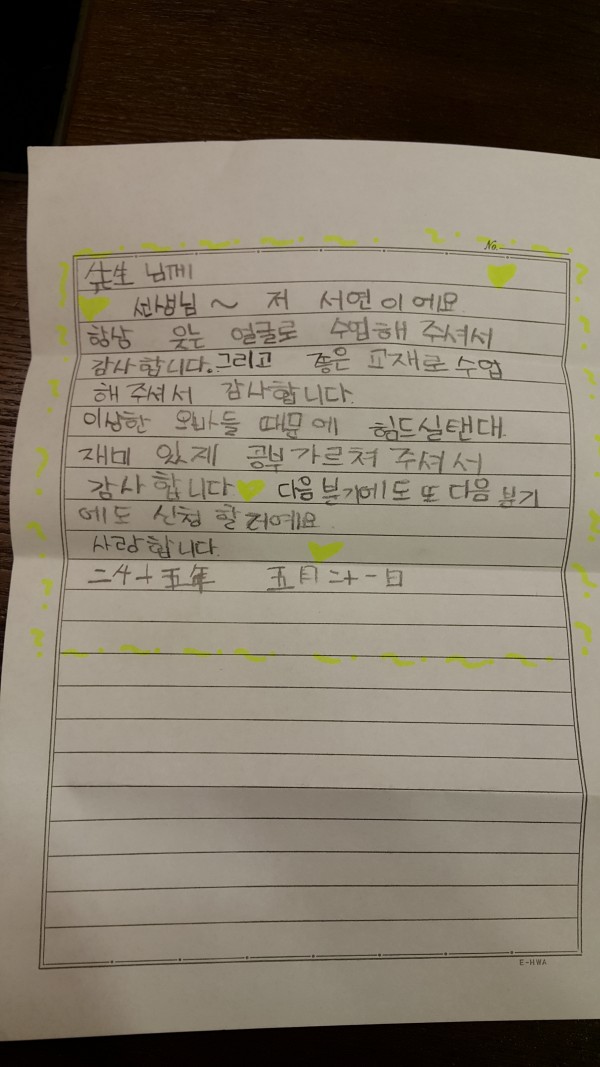 No.
先生 님께
선생님 ~ 저 서연이에요.
항상 웃는 얼굴로 수업해 주셔서
감사합니다. 그리고 좋은 교재로 수업
해 주셔서 감사합니다.
이상한 오빠들 때문에 힘드실탠대
재미 있게 공부 가르쳐 주셔서
감사합니다 다음 분기에도 또 다음 분기
에도 신청 할 거예요
사랑합니다.
二十五年 五月二十一日
E-HWA